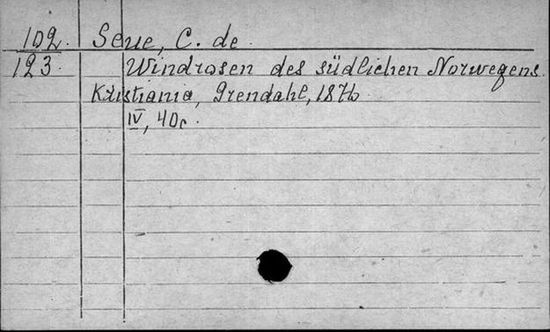 102. Seue, C. de
123. Windrosen des südlichen Norwegens.
Kristiania, Grendahl, 1876
IV, 40c.